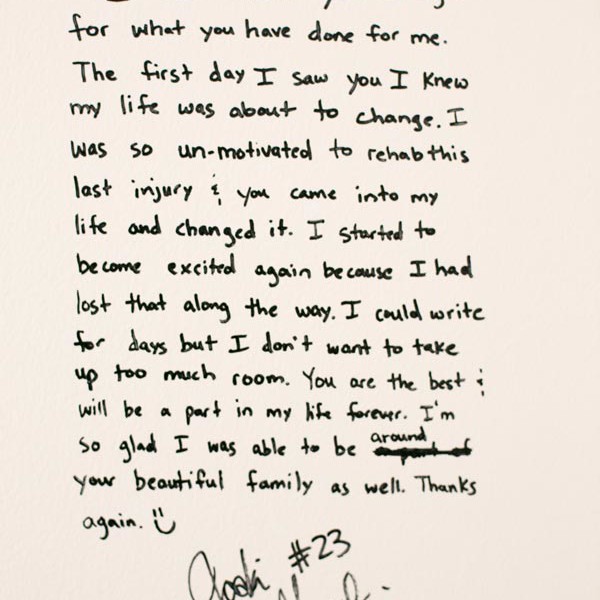 for what you have done for me.
The first day I saw you I knew
my life was about to change. I
was so un-motivated to rehab this
last injury & you came into my
life and changed it. I started to
become excited again because I had
lost that along the way. I could write
for days but I don't want to take
up too much room. You are the best &
will be a part in my life forever. I'm
so glad I was able to be around part of
your beautiful family as well. Thanks
again. :)
#23